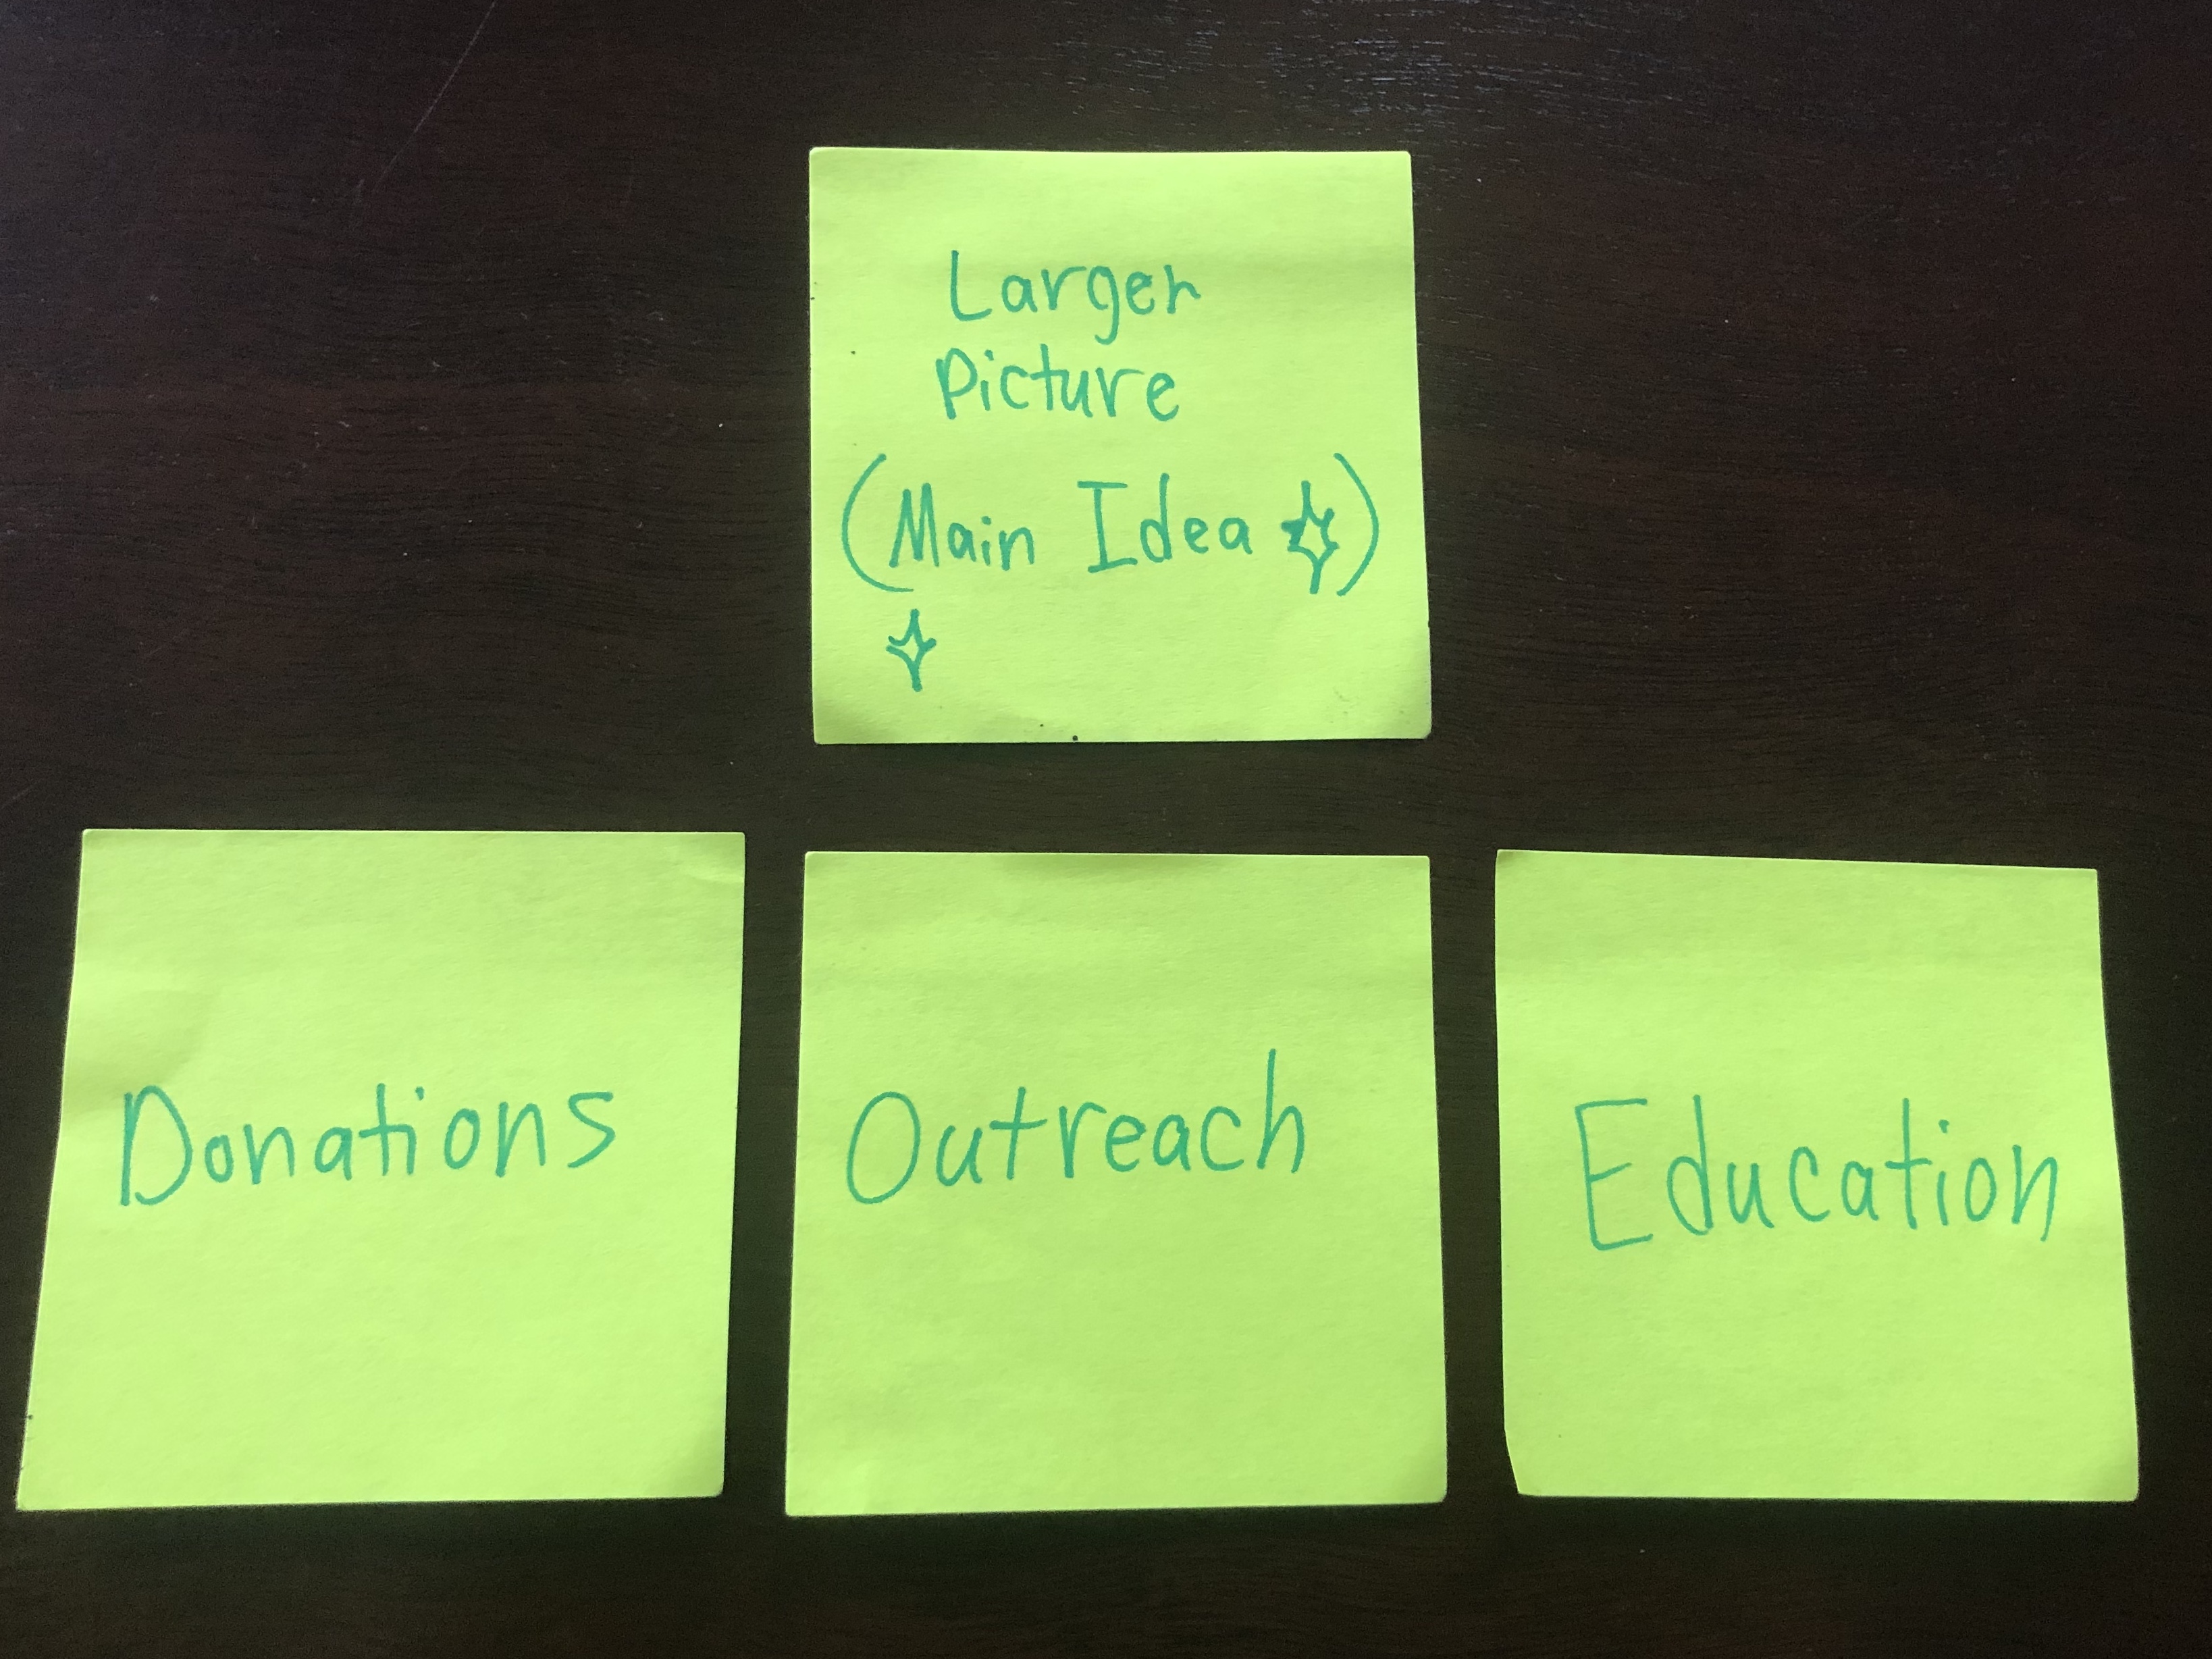 Larger
Picture
(Main Idea)
Donations
Outreach
Education